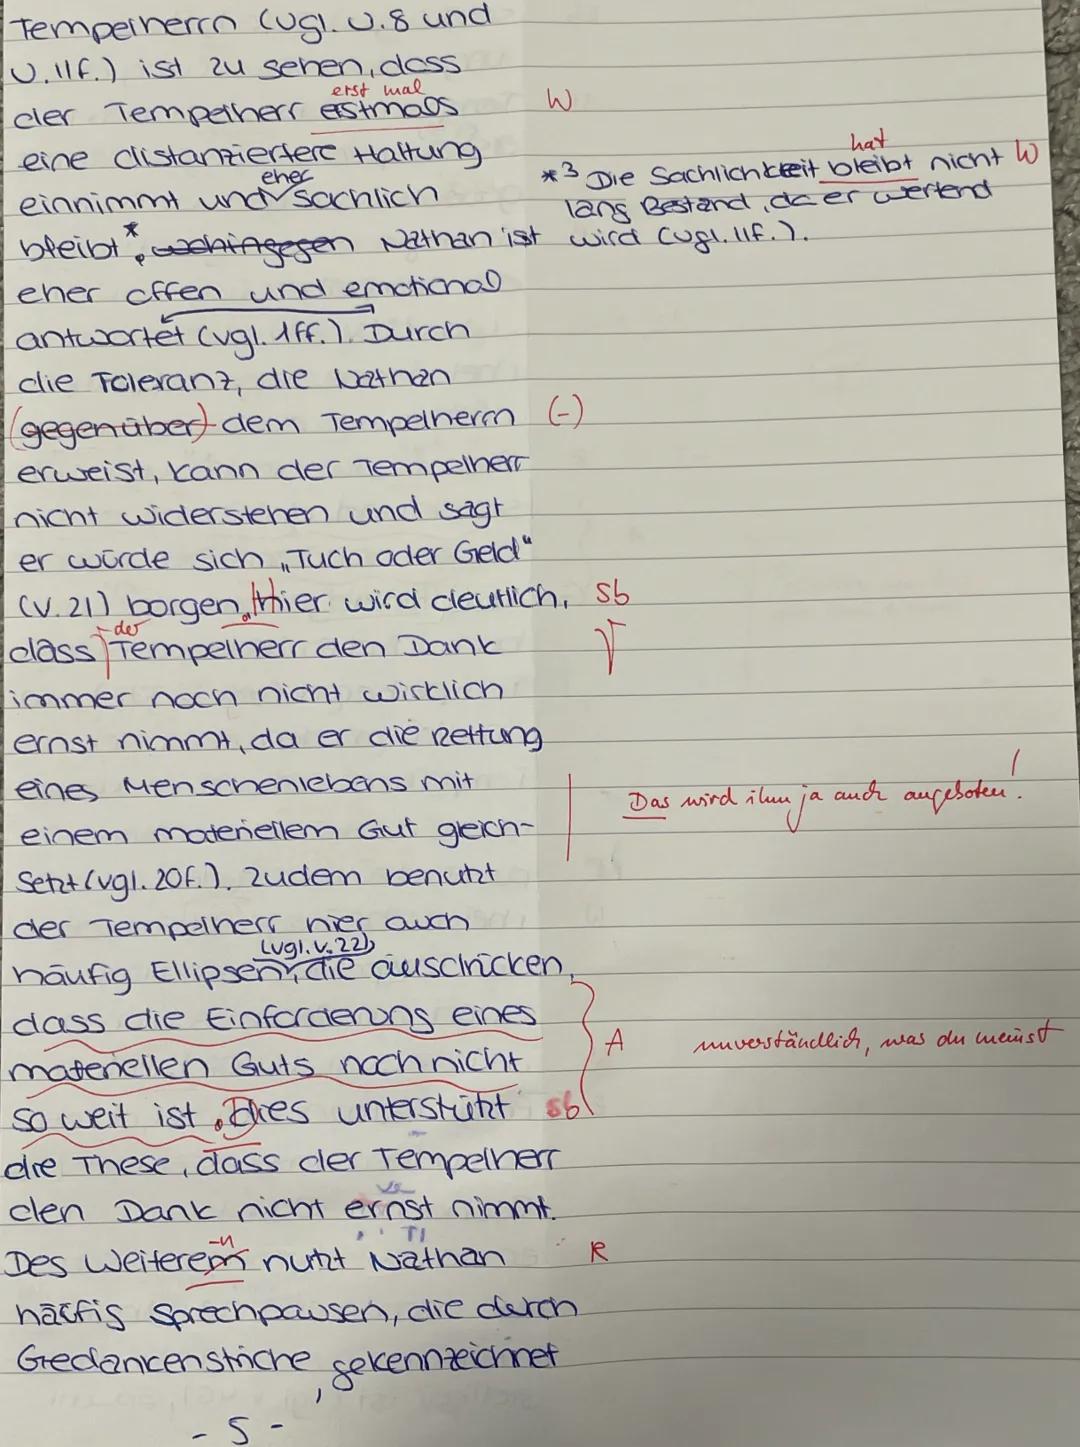 Tempelherrn (vgl. V.8 und
V.11f.) ist zu sehen, dass
erst mal
der Tempelherr erstmals W
eine distanziertere Haltung
eher
einnimmt und sachlich
bleibt*, wohingegen Nathan ist
eher offen und emotional
antwortet (vgl. 1ff.). Durch
die Toleranz, die Nathan
(gegenüber) dem Tempelherrn (-)
erweist, kann der Tempelherr
nicht widerstehen und sagt
er würde sich „Tuch oder Geld“
(V. 21) borgen. Hier wird deutlich, Sb
der
dass Tempelherr den Dank √
immer noch nicht wirklich
ernst nimmt, da er die Rettung
eines Menschenlebens mit
einem materiellem Gut gleich-
setzt (vgl. 20f.). Zudem benutzt
der Tempelherr hier auch
(vgl. V. 22)
häufig Ellipsen, die ausdrücken,
dass die Einforderung eines
materiellen Guts noch nicht
so weit ist. Dies unterstützt sb
die These, dass der Tempelherr
den Dank nicht ernst nimmt.
-n
Des Weiterem nutzt Nathan R
häufig Sprechpausen, die durch
Gedankenstriche gekennzeichnet
- 5 -
hat
*3 Die Sachlichkeit bleibt nicht W
lang Bestand, da er wertend
wird (vgl. 11f.).
Das wird ihm ja auch angeboten!
A unverständlich, was du meinst